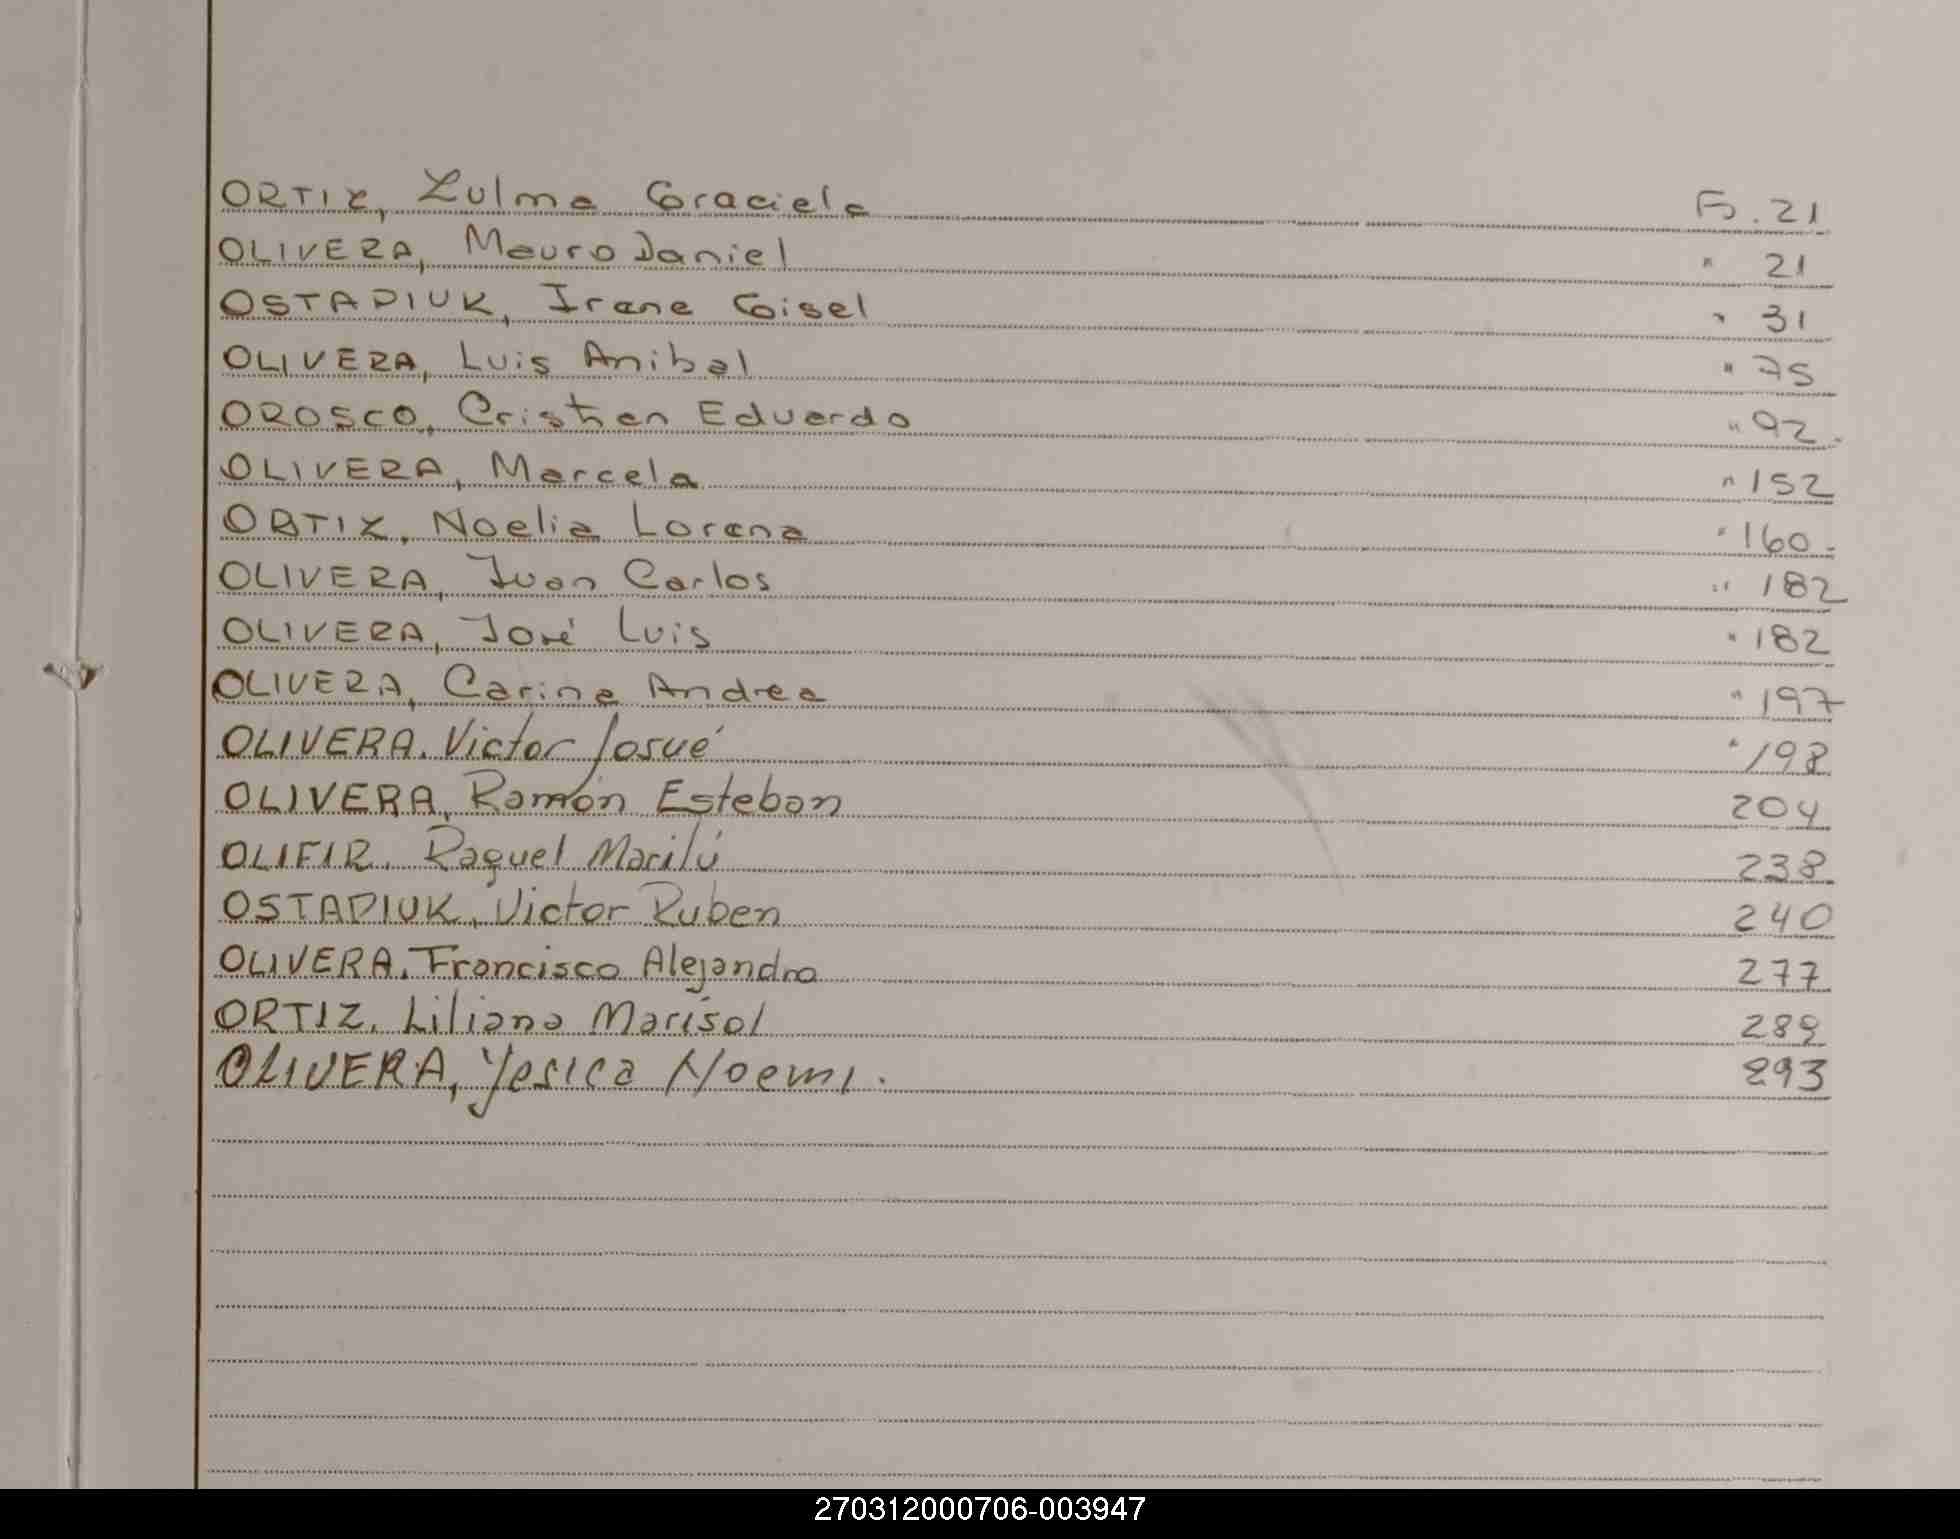 ORTIZ, Zulma Graciela Fo. 21
OLIVERA, Mauro Daniel " 21
OSTAPIUK, Irene Gisel " 31
OLIVERA, Luis Anibal " 75
OROSCO, Cristian Eduardo " 92.
OLIVERA, Marcela " 152
ORTIZ, Noelia Lorena " 160.
OLIVERA, Juan Carlos " 182
OLIVERA, José Luis " 182
OLIVERA, Carina Andrea " 197
OLIVERA. Victor Josué " 198
OLIVERA, Ramón Esteban 204
OLIFIR. Raquel Marilú 238
OSTAPIUK, Victor Ruben 240
OLIVERA. Francisco Alejandro 277
ORTIZ. Liliana Marisol 289
OLIVERA, Yesica Noemi. 293
270312000706-003947